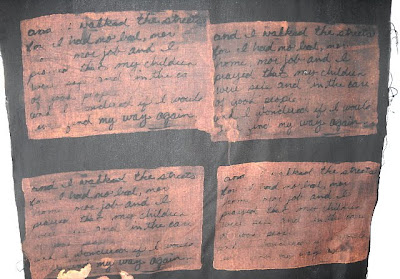 and i walked the streets
for i had no bed, nor
nor job and I
prayed that my children
were and in the
of good
and i wondered if i would
my way again
and i walked the streets
for i had no bed, nor
home nor job and I
prayed that my children
were and in the care
of good people
and i wondered if i would
my way again
and i walked the streets
for i had no bed, nor
home nor job and I
prayed that my children
were and in the care
and i wondered if i would
my way again
and i walked the streets
for i had no bed, nor
home nor job and I
prayed that my children
were and in the
of good people
and
my way again